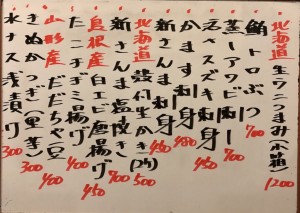 北海道 生ウニつまみ(小箱) 1200
鮪トロぶつ 700
蒸しアワビ刺し 700
スズキ刺身 450
かます刺身 480
新さんま刺身 450
北海道 殻付生かき(2ヶ) 500
新さんま塩焼き 700
島根産 白エビ唐揚げ 450
たこチヂミ揚げ 400
山形産 だだちゃ豆 400
きぬかつぎ(里芋) 300
水ナス浅漬け 300